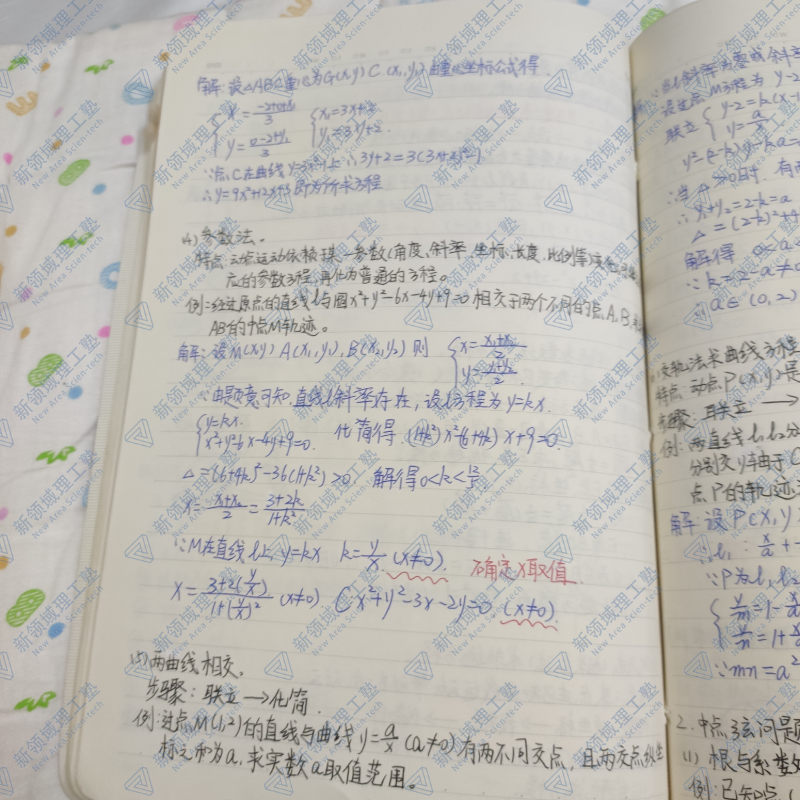 解: 设△ABC重心为G(x,y) C(x₁,y₁) 由重心坐标公式得
{x=(-2+0+x₁)/3 {x₁=3x+2
y=(0-2+y₁)/3 y₁=3y+2.
∵点C在曲线y=3x²-1上 ∴3y+2=3(3x+2)²-1
即为所求方程
(4) 参数法。
特点:动点运动依赖于某一参数(角度、斜率、坐标、长度、比例等)
应的参数方程,再化为普通的方程。
例:经过原点的直线l与圆x²+y²-6x-4y+9=0相交于两个不同的点A,B,
AB的中点M轨迹。
解: 设M(x,y) A(x₁,y₁), B(x₂,y₂) 则 {x=(x₁+x₂)/2
y=(y₁+y₂)/2
∵由题意可知,直线l斜率存在,设l方程为y=kx.
{y=kx.
x²+y²-6x-4y+9=0. 化简得 (1+k²)x²-(6+4k)x+9=0.
△=(6+4k)²-36(1+k²)>0, 解得0<k<12/5.
x=(x₁+x₂)/2=(3+2k)/(1+k²)
∵M在直线l上, y=kx k=y/x (x≠0). 不确定x取值
x=(3+2(y/x))/(1+(y/x)²) (x≠0) C x²+y²-3x-2y=0 (x≠0).
(5) 两曲线相交。
步骤: 联立→化简.
例:过点M(1,2)的直线与曲线y=a/x (a≠0)有两不同交点, 且两交点纵坐
标之和为a, 求实数a取值范围。
设过点M方程为y-2
联立 {y-2=k(x-1
y=a/x
∴当△>0时, 有两
∴y₁+y₂=2-k=a
△=(2-k)²+4
解得
∴k=2-a≠0
∴a∈(0,2)
法求曲线方程
特点:动点P(x,y)是
步骤: 联立→
例: 两直线l₁,l₂分
分别交y轴于C
点P的轨迹
解 设P(x,y
∵l₁: x/a+
∵P为l₁,l₂
{y/m=1-x/a
y/n=1+x/a
∵mn=a²
2. 中点弦问题
(1) 根与系数
例: 已知点(
新领域理工塾
New Area Scien-tech